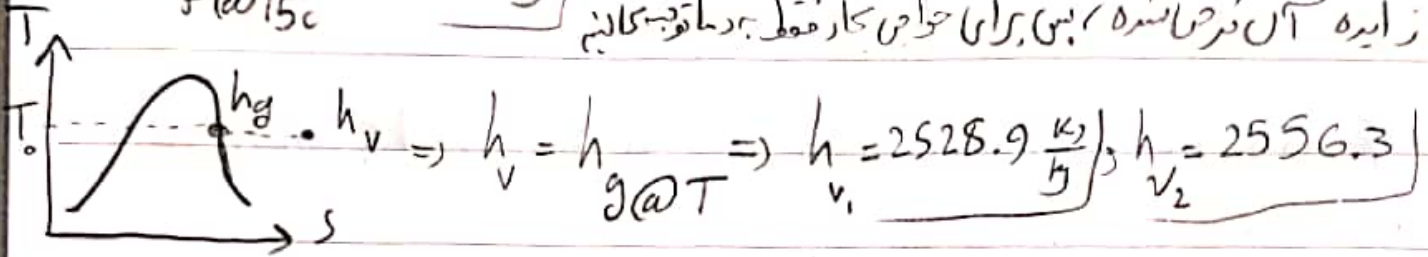 @15c
زایده آل فرض شده، پس برای خواص بخار فقط به دما توجه می‌کنیم
T
T₀ hg h_v => h_v = h_g@T => h_v₁ = 2528.9 kJ/kg ; h_v₂ = 2556.3
s